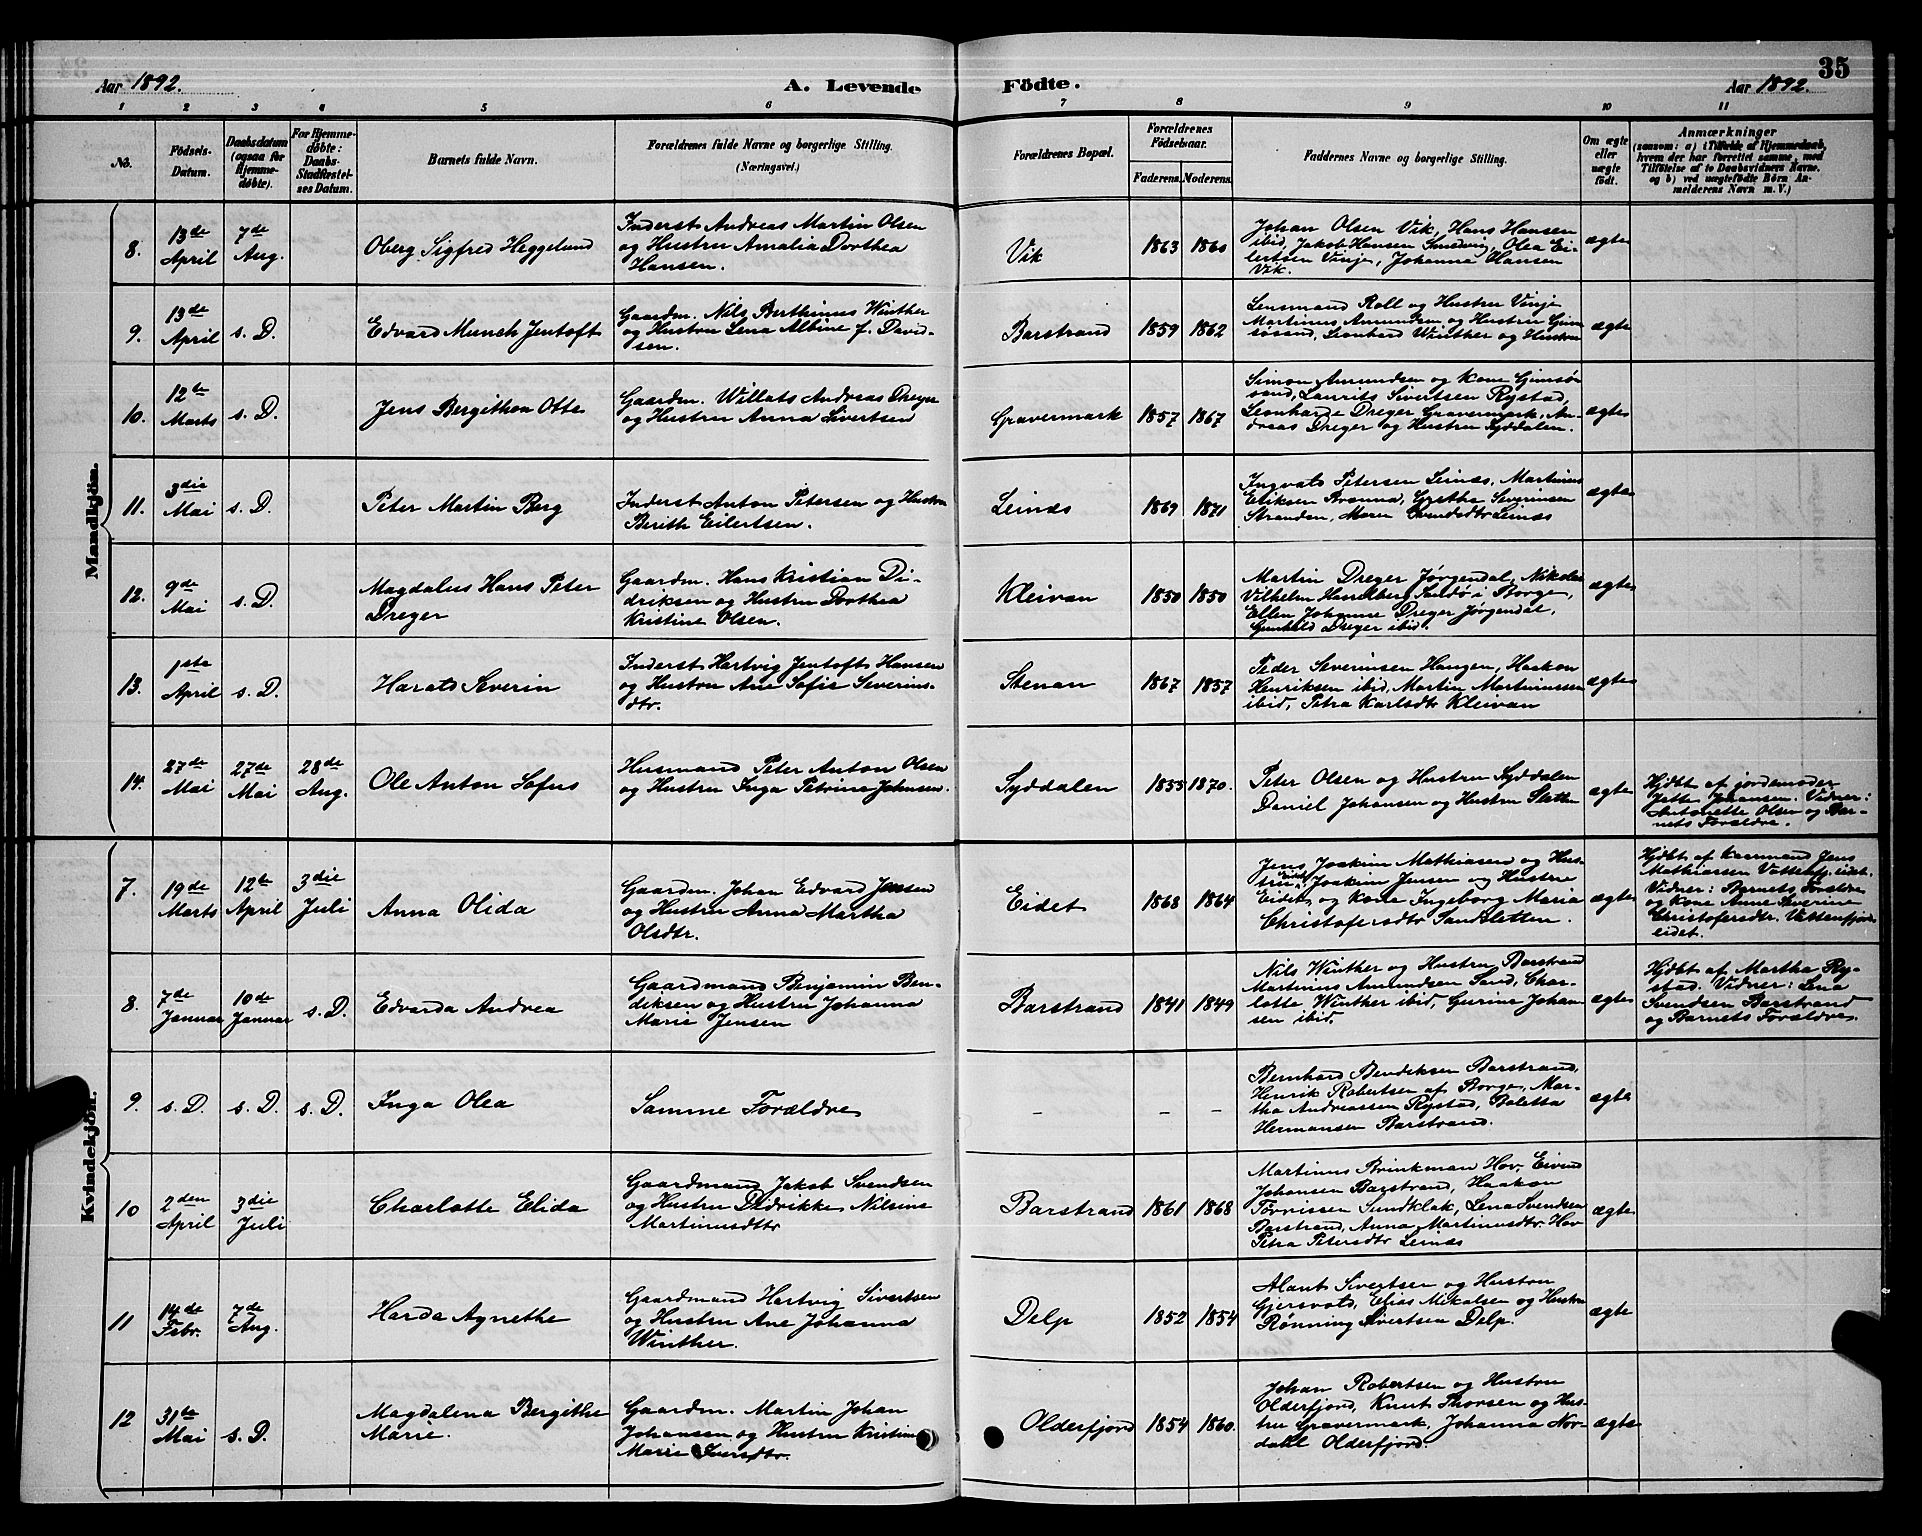 Aar 1892.
A. Levende
Födte.
Aar 1892.
35
1 2 3 4 5 6 7 8 9 10 11
No.
Födsels-
Datum.
Daabsdatum
(ogsaa for
Hjemme-
döbte).
For Hjemme-
döbte:
Daabs-
Stadfæstel-
ses Datum.
Barnets fulde Navn.
Forældrenes fulde Navne og borgerlige Stilling.
(Næringsvei.)
Forældrenes Bopæl.
Forældrenes
Födselsaar.
Faderens. Moderens.
Faddernes Navne og borgerlige Stilling.
Om ægte
eller
uægte
födt.
Anmærkninger
(saasom: a) i Tilfælde af Hjemmedaab,
hvem der har forrettet samme, med
Tilföielse af to Daabsvidners Navne,
og b) ved uægtefödte Börn An-
melderens Navn m. V.)
Mandkjön.
8.
13de
April
7de
Aug.
Oberg Sigfred Heggelund
Inderst Andreas Martin Olsen
og Hustru Amalia Dorthea
Hansen.
Vik
1863 1860
Johan Olsen Vik, Hans Hansen
ibid, Jakob Hansen Smedvig, Olea Ei-
lertsen Vinje, Johanna Hansen
Vik.
ægte
9.
13de
April
s. D.
Edvard Munch Jentoft
Gaardm. Nils Berthinus Winther
og Hustru Lena Albine f. David-
sen.
Barstrand
1859 1862
Lensmand Roll og Hustru Vinje
Martinus Amundsen og Hustru Gim
søsand, Leonhard Winther og Hustru
ægte
10.
12te
Marts
s. D.
Jens Bergithon Otte
Gaardm. Willats Andreas Dreyer
og Hustru Anna Sivertsen
Gravermark
1857 1867
Simon Amundsen og Kone Gimsø
sand, Laurits Sivertsen Rystad,
Leonharde Dreger Gravermark, An-
dreas Dreger og Hustru Syddalen.
ægte
11.
3die
Mai
s. D.
Peter Martin Berg
Inderst Anton Petersen og Hustru
Berith Eilertsen.
Leinæs
1869 1871
Ingvald Petersen Leinæs, Martinus
Eriksen Brenna, Gjertha Severinsen
Stranden, Maren Svendsdtr Leinæs
ægte
12.
9de
Mai
s. D.
Magdalus Hans Peter
Dreger
Gaardm. Hans Kristian Di-
driksen og Hustru Dorthea
Kristine Olsen.
Kleivan
1850 1850
Martin Dreger Jørgendal, Nikolai
Vilhelm Hasselberg Sandø i Borge,
Ellen Johanne Dreger Jørgendal,
Gunhild Dreger ibid.
ægte
13.
1ste
April
s. D.
Harald Severin
Inderst Hartvig Jentoft Hansen
og Hustru Ane Sofie Severins-
dtr.
Stenan
1867 1857
Peder Severinsen Haugen, Haakon
Henriksen ibid, Martin Martinussen
ibid, Petra Karlsdtr Kleivan
ægte
14.
27de
Mai
27de
Mai
28de
Aug.
Ole Anton Sofus
Husmand Peter Anton Olsen
og Hustru Inga Petrine Johnsen.
Syddalen
1855 1870.
Peter Olsen og Hustru Syddalen
Daniel Johansen og Hustru Sletten
ægte
Hjdbt af jordemoder
Jette Johansen. Vidner:
Antonette Olsen og Bar-
nets Forældre.
Kvindekjön.
7.
19de
Marts
12te
April
3die
Juli
Anna Olida
Gaardm. Johan Edvard Jensen
og Hustru Anna Martha
Olsdtr.
Eidet
1868 1864
Jens Joakim Mathiasen og Hus-
tru, Joakim Jensen og Hustru
Eidet og Kone Ingeborg Maria
Christofersdtr Sandsletten.
ægte
Hjdbt af Kaarmand Jens
Mathiassen Vattenfj. eidet.
Vidner: Barnets Forældre
og Kone Anne Severine
Christofersdtr. Vattenfjord
eidet.
8.
7de
Januar
10de
Januar
s. D.
Edvarda Andrea
Gaardmand Benjamin Ben-
diksen og Hustru Johanna
Marie Jensen
Barstrand
1841 1849
Nils Winther og Hustru Barstrand
Martinus Amundsen Sand, Char-
lotte Winther ibid, Gurine Johan
sen ibid.
ægte
Hjdbt af Martha Ry-
stad. Vidner: Lena
Svendsen Barstrand
og Barnets Forældre.
9.
s. D.
s. D.
s. D.
Inga Olea
Samme Forældre
– – –
Bernhard Bendiksen Barstrand,
Henrik Robertsen af Borge, Mar-
tha Andreassen Rystad, Boletta
Hermansen Barstrand.
ægte
10
2den
April
3die
Juli
Charlotte Elida
Gaardmand Jakob Svendsen
og Hustru Didrikke Nilsine
Martinusdtr
Barstrand
1861 1868
Martinus Brinkman Hov, Eivind
Johansen Barstrand, Haakon
Torrissen Sundklak, Lena Svendsen
Barstrand, Anna Martinusdtr. Hov
Petra Petersdtr Leinæs
ægte
11
14de
Febr.
7de
Aug.
Harda Agnethe
Gaardmand Hartvig Sivertsen
og Hustru Ane Johanna
Winther.
Delp
1852 1854
Alant Sivertsen og Hustru
Gjersvold, Elias Mikalsen og Hustru
Rønning Sivertsen Delp.
ægte
12
31te
Mai
s. D.
Magdalena Bergithe
Marie.
Gaardm. Martin Johan
Johansen og Hustru Kristine
Marie
Olderfjord
1854 1860.
Johan Robertsen og Hustru
Olderfjord, Knut Thorsen og Hus-
tru Gravermark, Johanna Nor-
dahl Olderfjord.
ægte